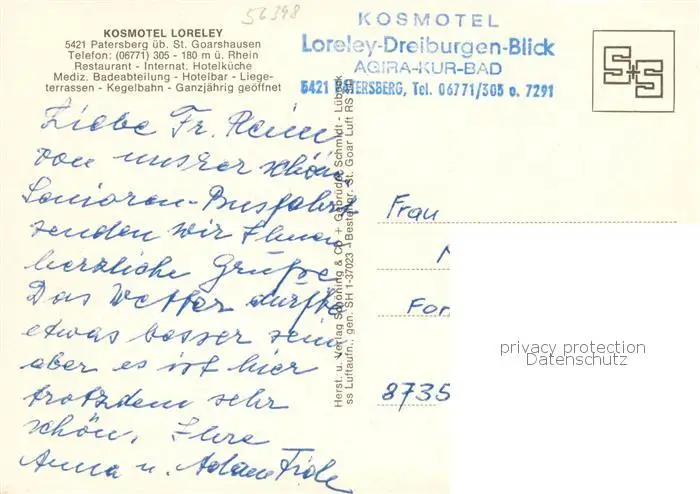 56398
KOSMOTEL LORELEY
5421 Patersberg üb. St. Goarshausen
Telefon: (06771) 305 - 180 m ü. Rhein
Restaurant - Internat. Hotelküche
Mediz. Badeabteilung - Hotelbar - Liege-
terrassen - Kegelbahn - Ganzjährig geöffnet
KOSMOTEL
Loreley-Dreiburgen-Blick
AGIRA-KUR-BAD
5421 PATERSBERG, Tel. 06771/305 o. 7291
S+S
Liebe Fr.
von unserer schönen
Senioren-Busfahrt
senden wir Ihnen
herzliche Grüße
Das Wetter dürfte
etwas besser sein
aber es ist hier
trotzdem sehr
schön. Ihre
Anna u. Adam
Herst. u. Verlag Schöning & Co + Gebrüder Schmidt - Lübeck
ss Luftaufn., gen. SH 1-37023 - Bestellnr. St. Goar Luft RS
Frau
For
8735
privacy protection
Datenschutz